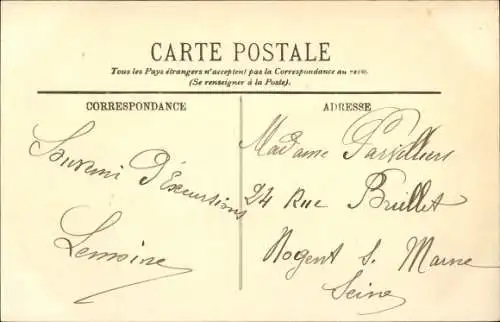 CARTE POSTALE
Tous les Pays étrangers n'acceptent pas la Correspondance au recto.
(Se renseigner à la Poste).
CORRESPONDANCE
Souvenir D'Excursions
Lemoine
ADRESSE
Madame Parvilliers
24 Rue Brillet
Nogent s. Marne
Seine